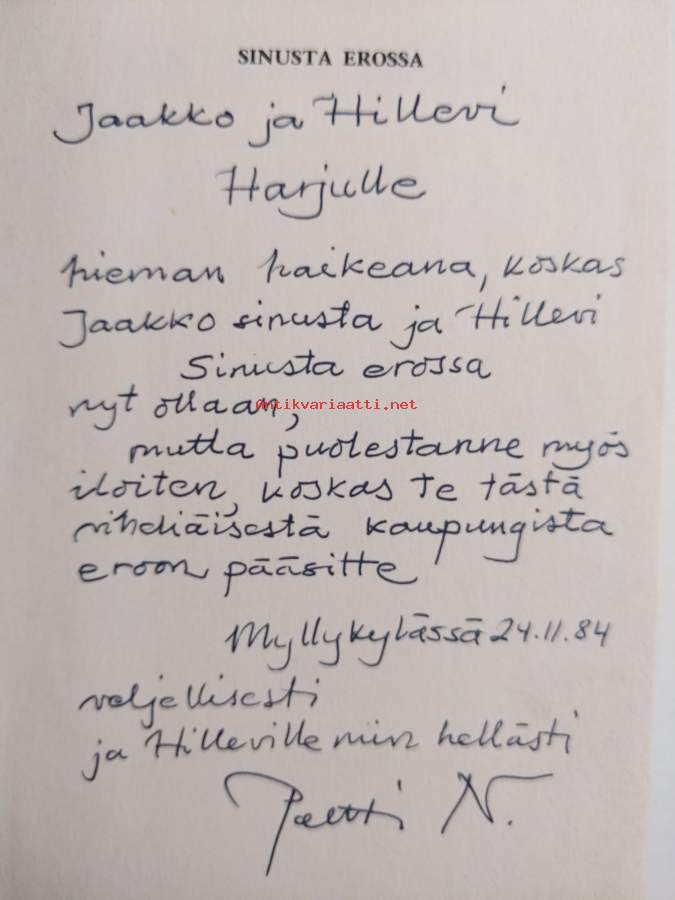 SINUSTA EROSSA
Jaakko ja Hillevi
Harjulle
hieman haikeana, koskas
Jaakko sinusta ja Hillevi
Sinusta erossa
nyt ollaan,
Antikvariaatti.net
mutta puolestanne myös
iloiten, koskas Te tästä
vihdiäisestä kaupungista
eroon pääsitte
Myllykylässä 24.11.84
veljellisesti
ja Hilleville niin hellästi
N.